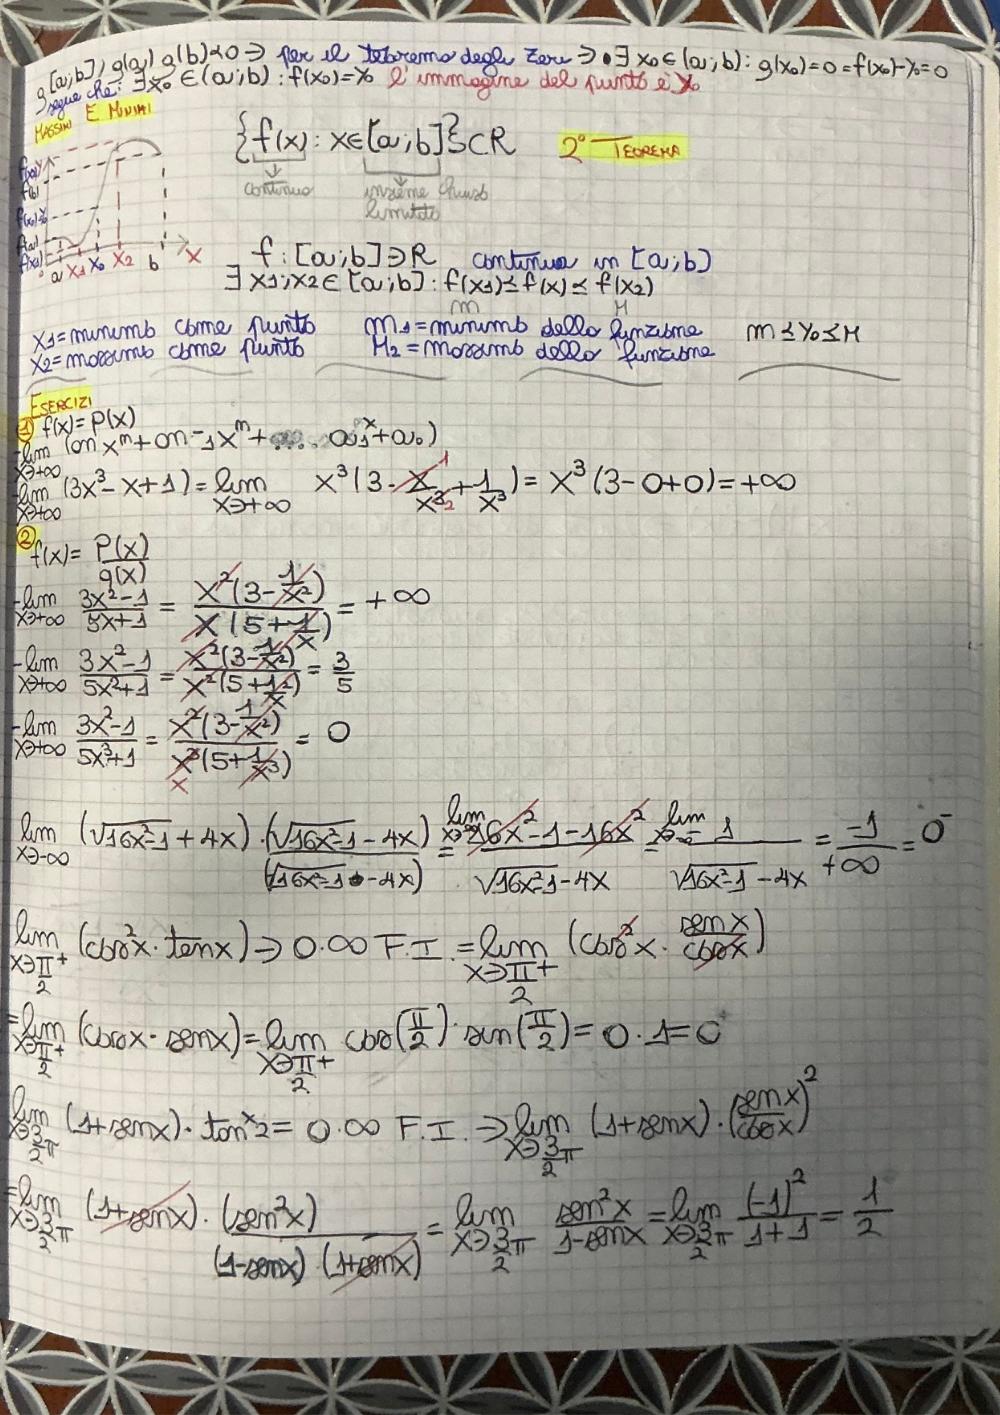 g[a;b], g(a) g(b)<0 ⇒ per il teorema degli zeri ⇒ •∃ x₀∈(a;b): g(x₀)=0=f(x₀)-y₀=0
segue che: ∃x₀∈(a;b): f(x₀)=y₀ l'immagine del punto è y₀
MASSIMI E MINIMI
{f(x): x∈[a;b]}⊂R 2° TEOREMA
continua insieme chiuso
limitato
f(b)
a x₁ x₀ x₂ b x
f: [a;b]→R continua in [a;b]
∃ x₁;x₂∈[a;b]: f(x₁)≤f(x)≤f(x₂)
m M
x₁=minimo come punto m₁=minimo della funzione m≤y₀≤M
x₂=massimo come punto M₂=massimo della funzione
ESERCIZI
① f(x)=P(x)
-lim x→+∞ (an xⁿ+an-1xⁿ+ ..... a₁ˣ+a₀)
-lim x→+∞ (3x³-x+1)= lim x→+∞ x³(3-x/x³²+1/x³)= x³(3-0+0)=+∞
② f(x)= P(x)/q(x)
-lim x→+∞ (3x²-1)/(5x+1) = x²(3-1/x²)/x(5+1/x) = +∞
-lim x→+∞ (3x²-1)/(5x²+1) = x²(3-1/x²)/x²(5+1/x²) = 3/5
-lim x→+∞ (3x²-1)/(5x³+1) = x²(3-1/x²)/x³(5+1/x³) = 0
lim x→-∞ (√16x²-1+4x)·(√16x²-1-4x)/(√16x²-1-4x) = lim x→-∞ (16x²-1-16x²)/(√16x²-1-4x) = lim x→-∞ -1/(√16x²-1-4x) = -1/+∞ = 0⁻
lim x→π/2⁺ (cos²x·tanx)⇒ 0·∞ F.I. = lim x→π/2⁺ (cos²x·senx/cosx)
=lim x→π/2⁺ (cosx·senx)= lim x→π/2⁺ cos(π/2)·sin(π/2)=0·1=0⁺
lim x→3/2π (1+senx)·tanˣ2=0·∞ F.I.⇒ lim x→3/2π (1+senx)·(senx/cosx)²
=lim x→3/2π (1+senx)·(sen²x)/(1-senx)(1+senx) = lim x→3/2π sen²x/1-senx = lim x→3/2π (-1)²/1+1 = 1/2